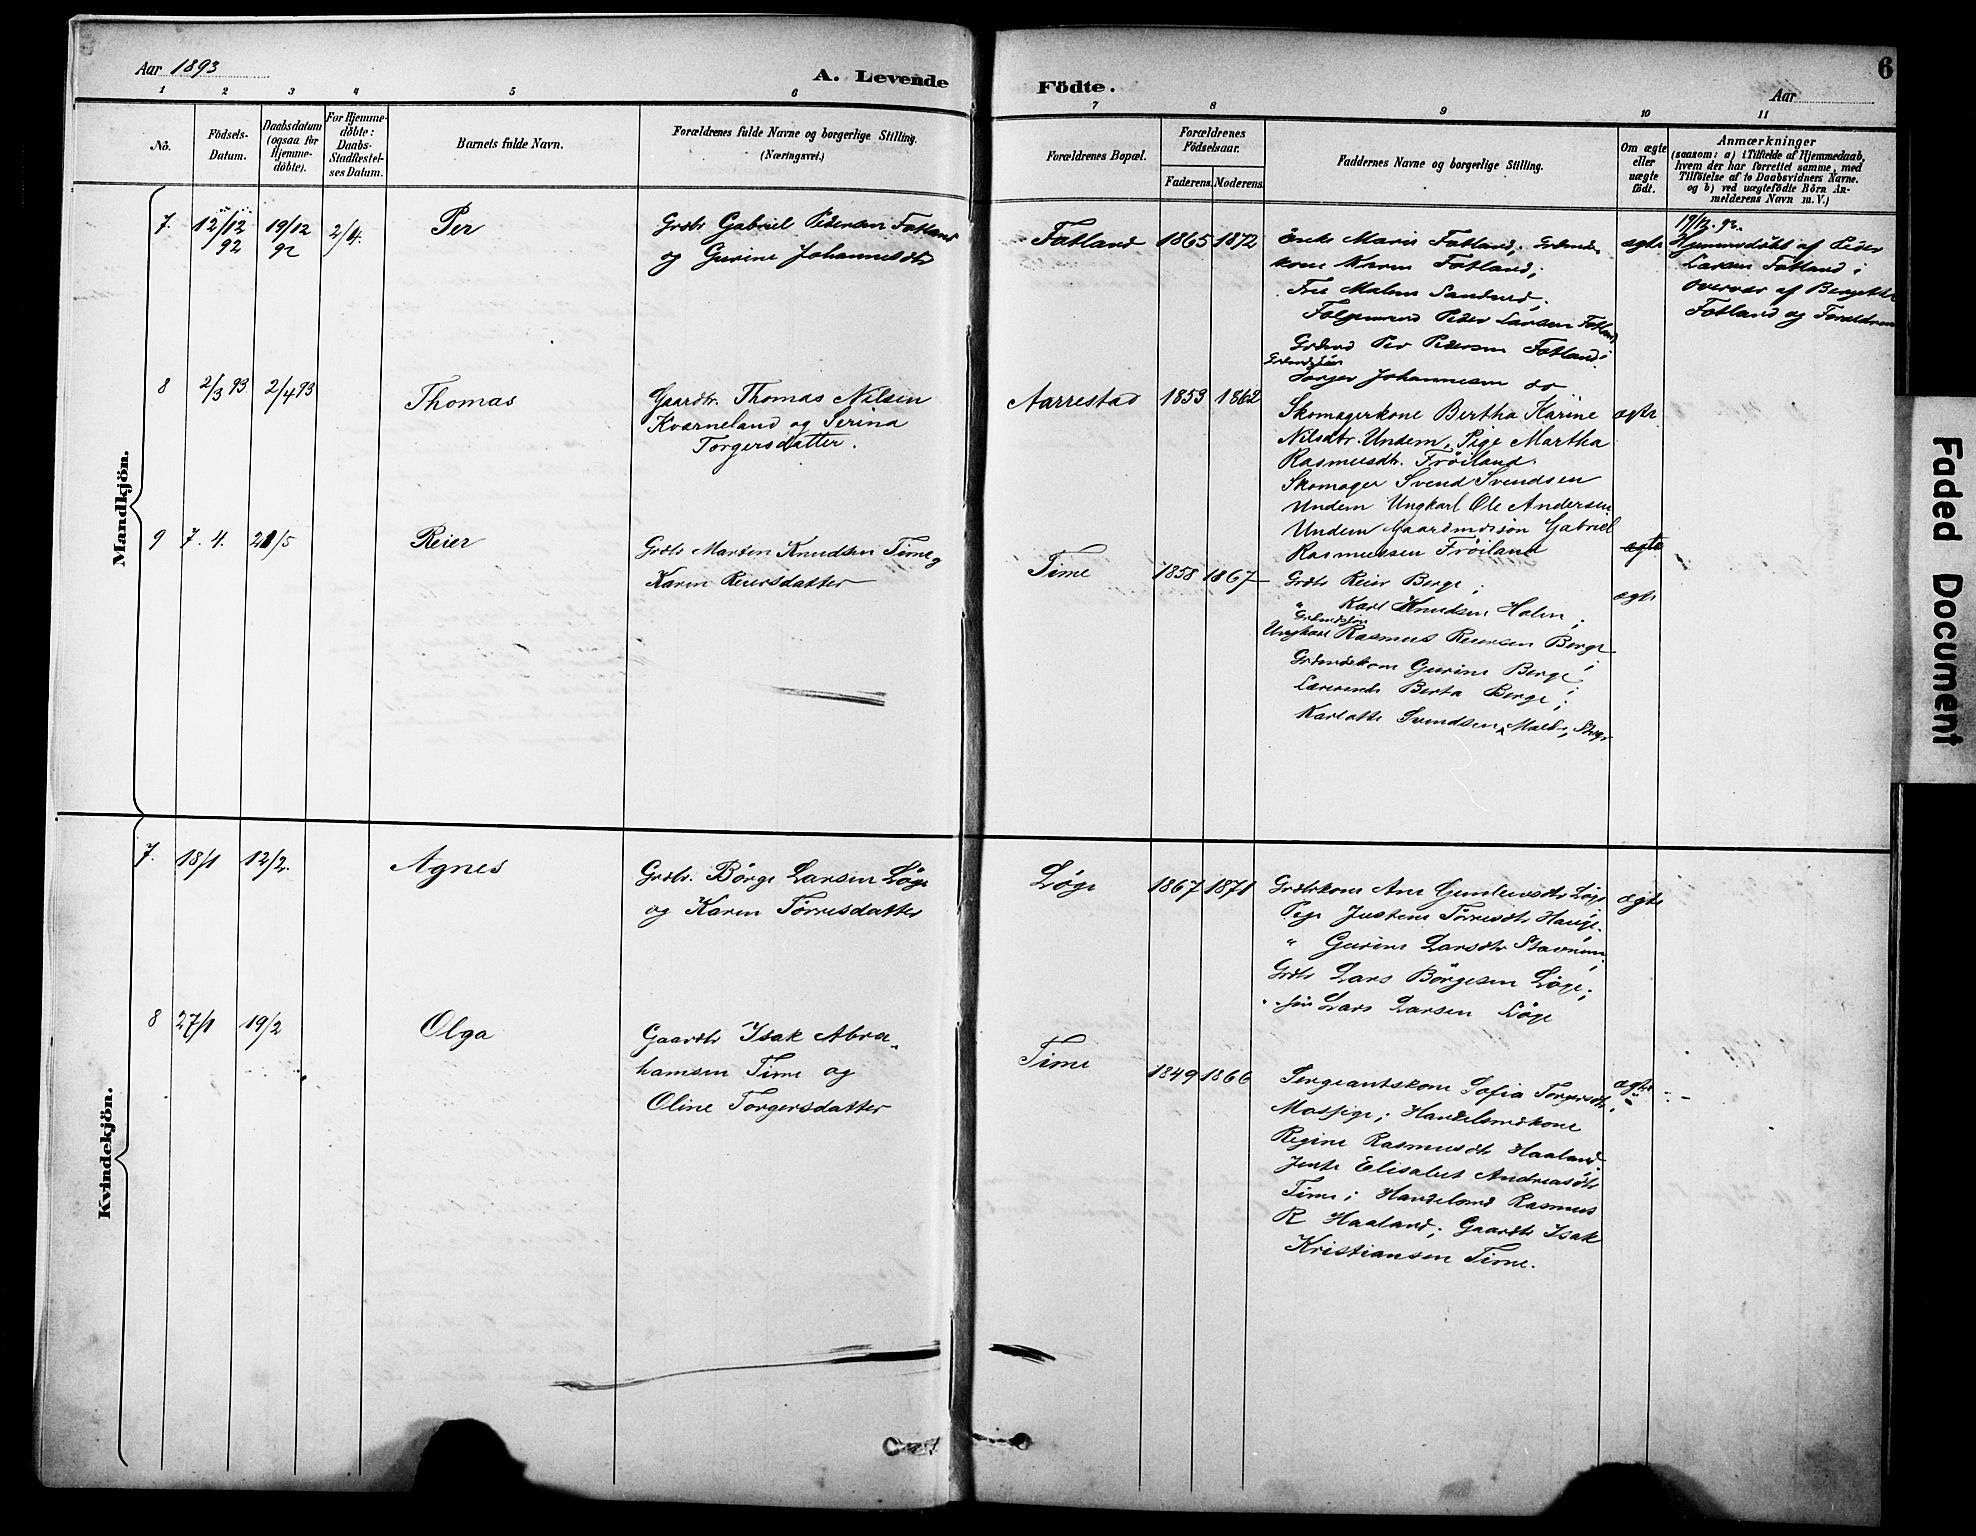 Aar 1893
A. Levende
Födte.
Aar
6
1 2 3 4 5 6 7 8 9 10 11
No.
Födsels-
Datum.
Daabsdatum
(ogsaa for
Hjemme-
döbte).
For Hjemme-
döbte:
Daabs-
Stadfæstel-
ses Datum.
Barnets fulde Navn.
Forældrenes fulde Navne og borgerlige Stilling.
(Næringsvei.)
Forældrenes Bopæl.
Forældrenes
Födselsaar.
Faderens. Moderens.
Faddernes Navne og borgerlige Stilling.
Om ægte
eller
uægte
födt.
Anmærkninger
(saasom: a) i Tilfælde af Hjemmedaab,
hvem der har forrettet samme, med
Tilföielse af to Daabsvidners Navne.
og b) ved uægtefödte Börn An-
melderens Navn m. V.)
Mandkjön.
7. 12/12 92 19/12 92 2/4. Per
Grdbr Gabriel Pedersen Fotland
og Gurine Johannesdtr
Fotland 1865 1872
Marie Fotland;
kone Karen Fotland;
Malene Sandved;
Peder Larsen Fotland
Per Pedersen Fotland;
Torger Johannesen do
ægte
19/12. 92.
Hjemmedöbt af Peder
Larsen Fotland i
Overvær af
Fotland og Forældrene
8 2/3 93 2/4 93 Thomas
Gaardbr. Thomas Nilsen
Kværneland og Serina
Torgersdatter.
Aarrestad 1853 1862
Skomagerkone Bertha Karine
Nilsdtr. Undem, Pige Martha
Rasmusdtr. Fröiland.
Skomager Svend Svendsen
Undem Ungkarl Ole Andersen
Undem Gaardmdsön Gabriel
Rasmussen Fröiland
ægte
ægte
9 7. 4. 21/5 Reier
Grdbr Marten Knudsen Time og
Karen Reiersdatter
Time 1858 1867
Grdbr Reier Berge;
" Karl Knudsen Holen;
Grdmdssön
Ungkarl Rasmus Reiersen Berge
Grdmdskone Gurine Berge;
Lærerinde Berta Berge;
Karlotte Svendsen,
ægte
Kvindekjön.
7. 18/1 12/2. Agnes
Grdbr. Börge Larsen Löge
og Karen Törresdatter
Löge 1867 1871
Grdbrkone Ane Gunlevsdtr Löge
Pige Justine Törresdtr Hauge.
" Gurine Larsdtr Stavnem;
Grdbr Lars Börgesen Löge;
" sön Lars Larsen Löge
ægte
8 27/1 19/2 Olga
Gaardbr Isak Abra-
hamsen Time og
Oline Torgersdatter
Time 1849 1866
Sergeantskone Sofia Torgersdtr
Mossige; Handelsmdkone
Regine Rasmusdtr Haaland
Jente Elisabet Andreasdtr
Time; Handelsmd Rasmus
R Haaland; Gaardbr Isak
Kristiansen Time.
ægte
Faded Document